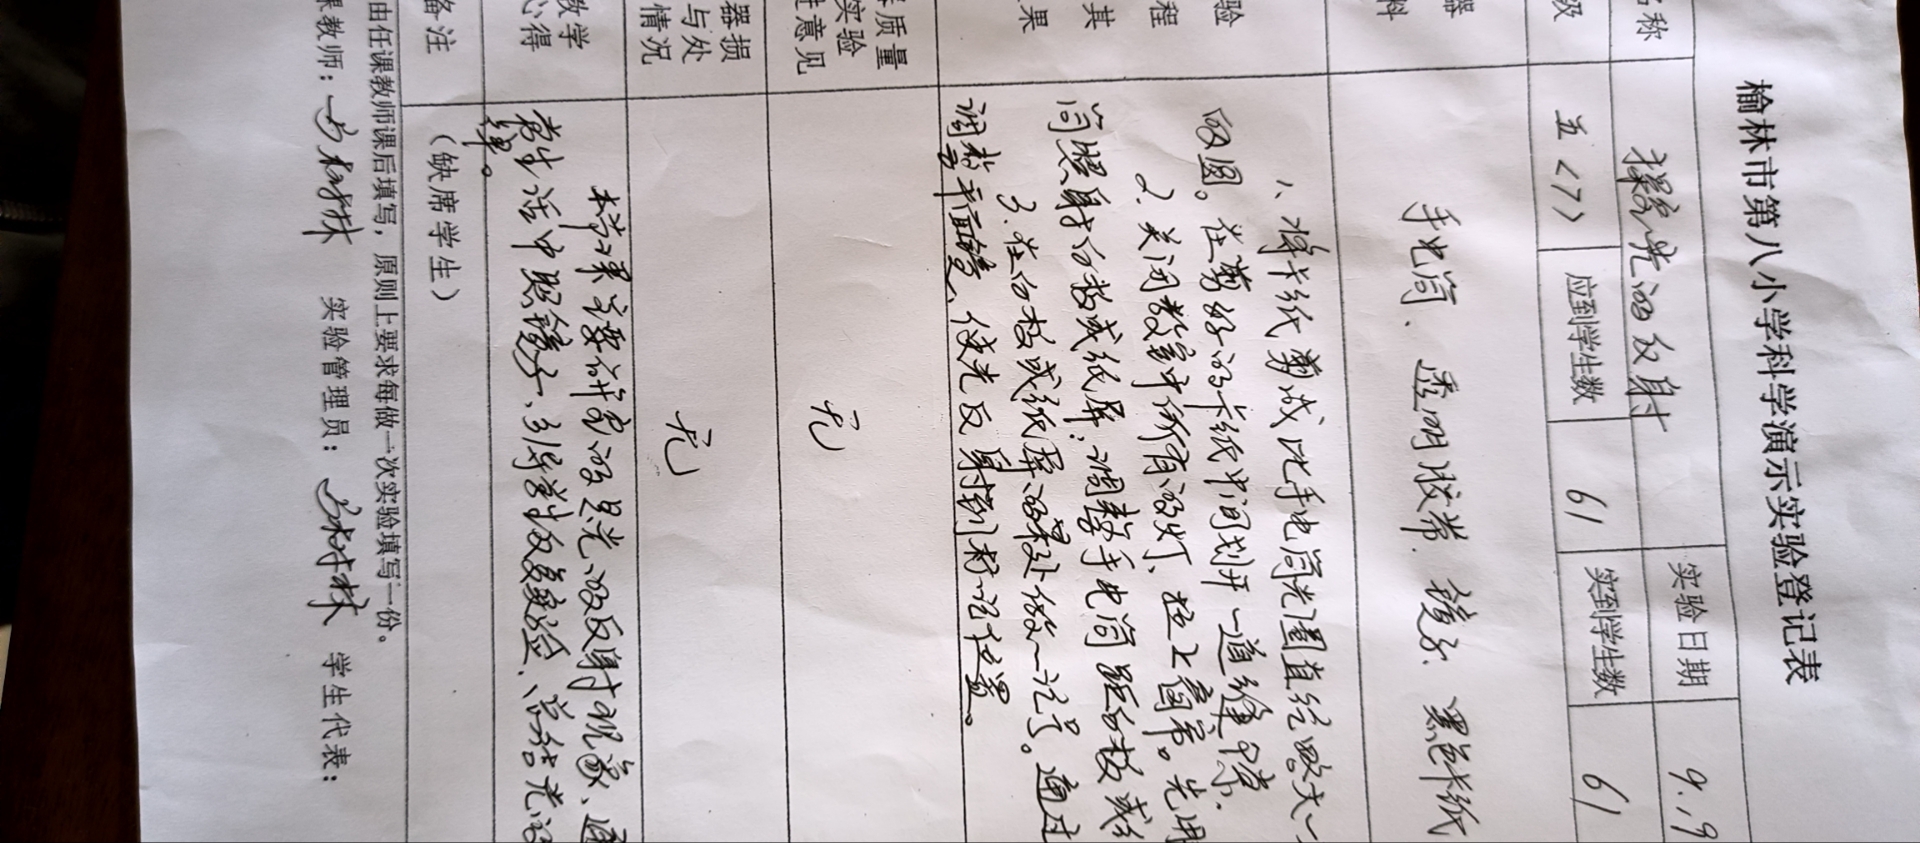 榆林市第八小学科学演示实验登记表
名称 探究光的反射 实验日期 9.19
级 五<7> 应到学生数 61 实到学生数 61
器
料
手电筒、透明胶带、镜子、黑色卡纸
验
程
其
果
1、将卡纸剪成比手电筒光圈直径略大一
的圆。在剪好的卡纸中间划开一道缝
2、关闭教室中所有的灯、拉上窗帘。先用
筒照射白板或纸屏,调整手电筒距白板或
3、在白板或纸屏的某处做一记号。通过
调整平面镜、使光反射到标记位置。
质量
实验
意见
无
器损
与处
情况
无
教学
心得
本节课主要研究的是光的反射现象、通
常生活中照镜子、引导学生反复实验、总结光的
律。
备注
(缺席学生)
由任课教师课后填写,原则上要求每做一次实验填写一份。
课教师: 实验管理员: 学生代表: